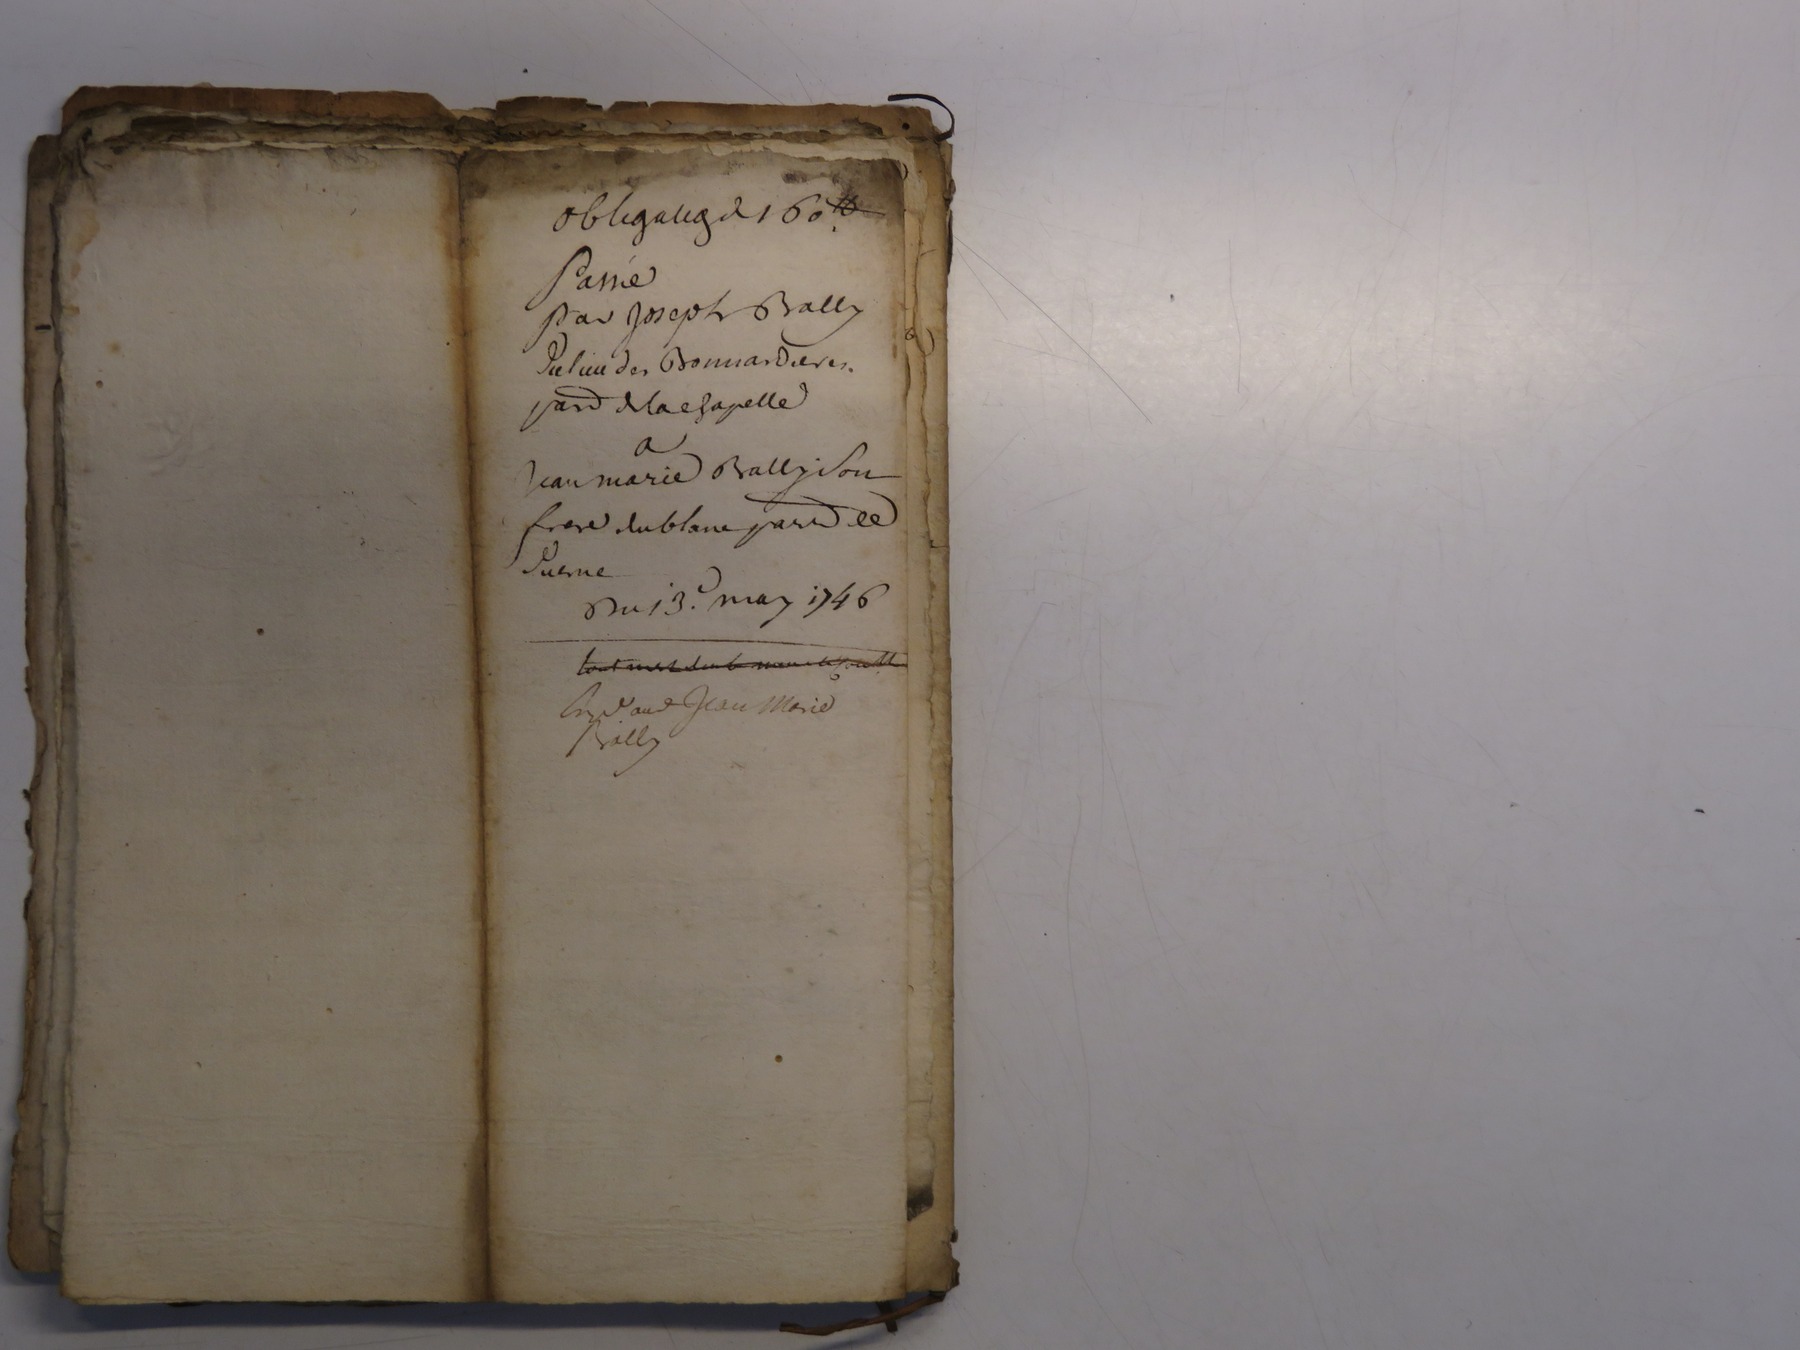 obligatiõ de 160 ₶
Passée
Par Joseph Bally
du lieu des Bonnardieres
parr de la chapelle
a
Jean marie Bally son
frere du blanc parr de
Du 13e may 1746
Jean Marie
Bally